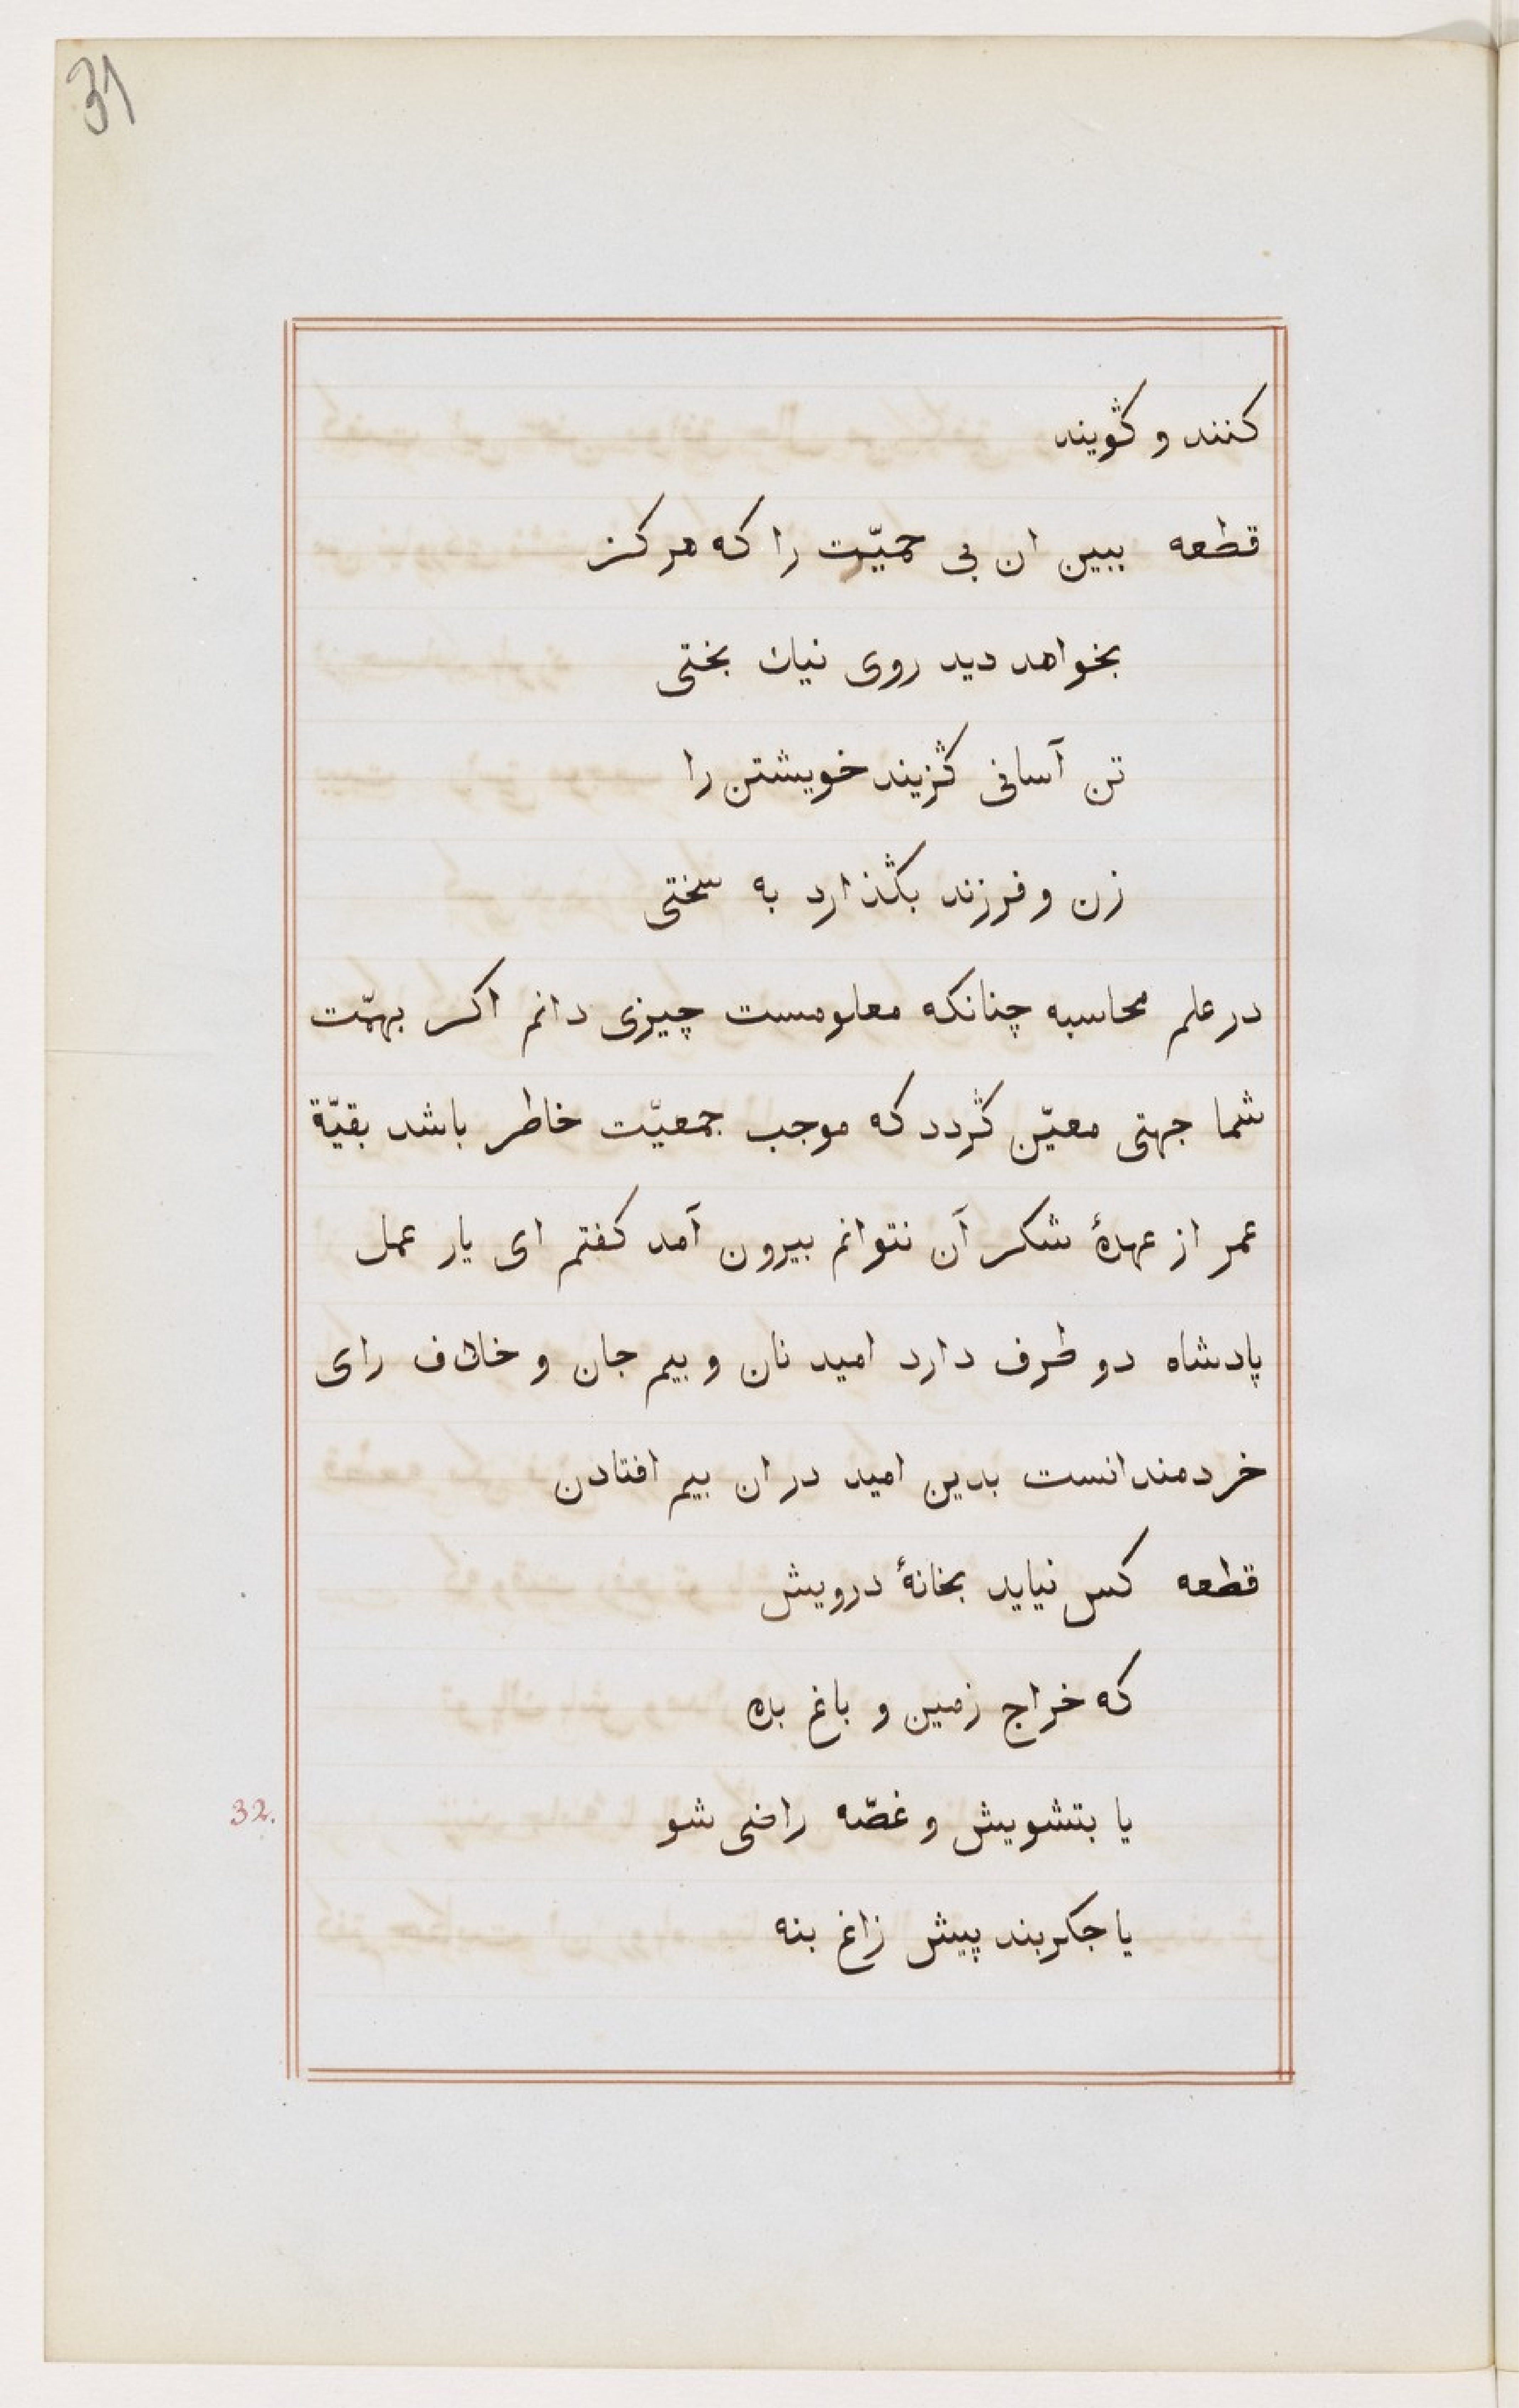 31
کنند و گویند
قطعه ببین ان بی حمیّت را که هرکز
بخواهد دید روی نیك بختی
تن آسانی گزیند خویشتن را
زن و فرزند بگذارد به سختی
در علم محاسبه چنانکه معلومست چیزی دانم اکر بهمّت
شما جهتی معیّن گردد که موجب جمعیّت خاطر باشد بقیّة
عمر از عهدهٔ شکر آن نتوانم بیرون آمد کفتم ای یار عمل
پادشاه دو طرف دارد امید نان و بیم جان و خلاف رای
خردمندانست بدین امید در ان بیم افتادن
قطعه کس نیاید بخانهٔ درویش
که خراج زمین و باغ بده
یا بتشویش و غصّه راضی شو
32.
یا جکربند پیش زاغ بنه